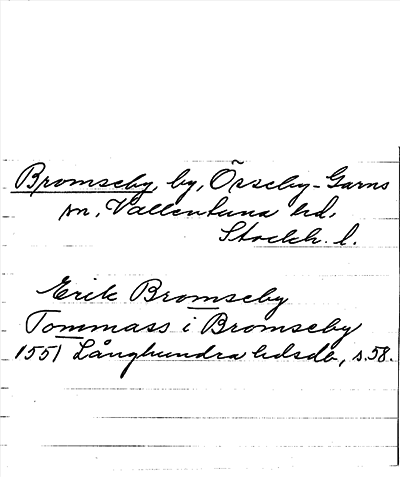 Bromseby, by, Össeby-Garns
sn, Vallentuna hd,
Stockh. l.
Erik Bromseby
Tommass i Bromseby
1551 Långhundra hdsdb, s. 58.